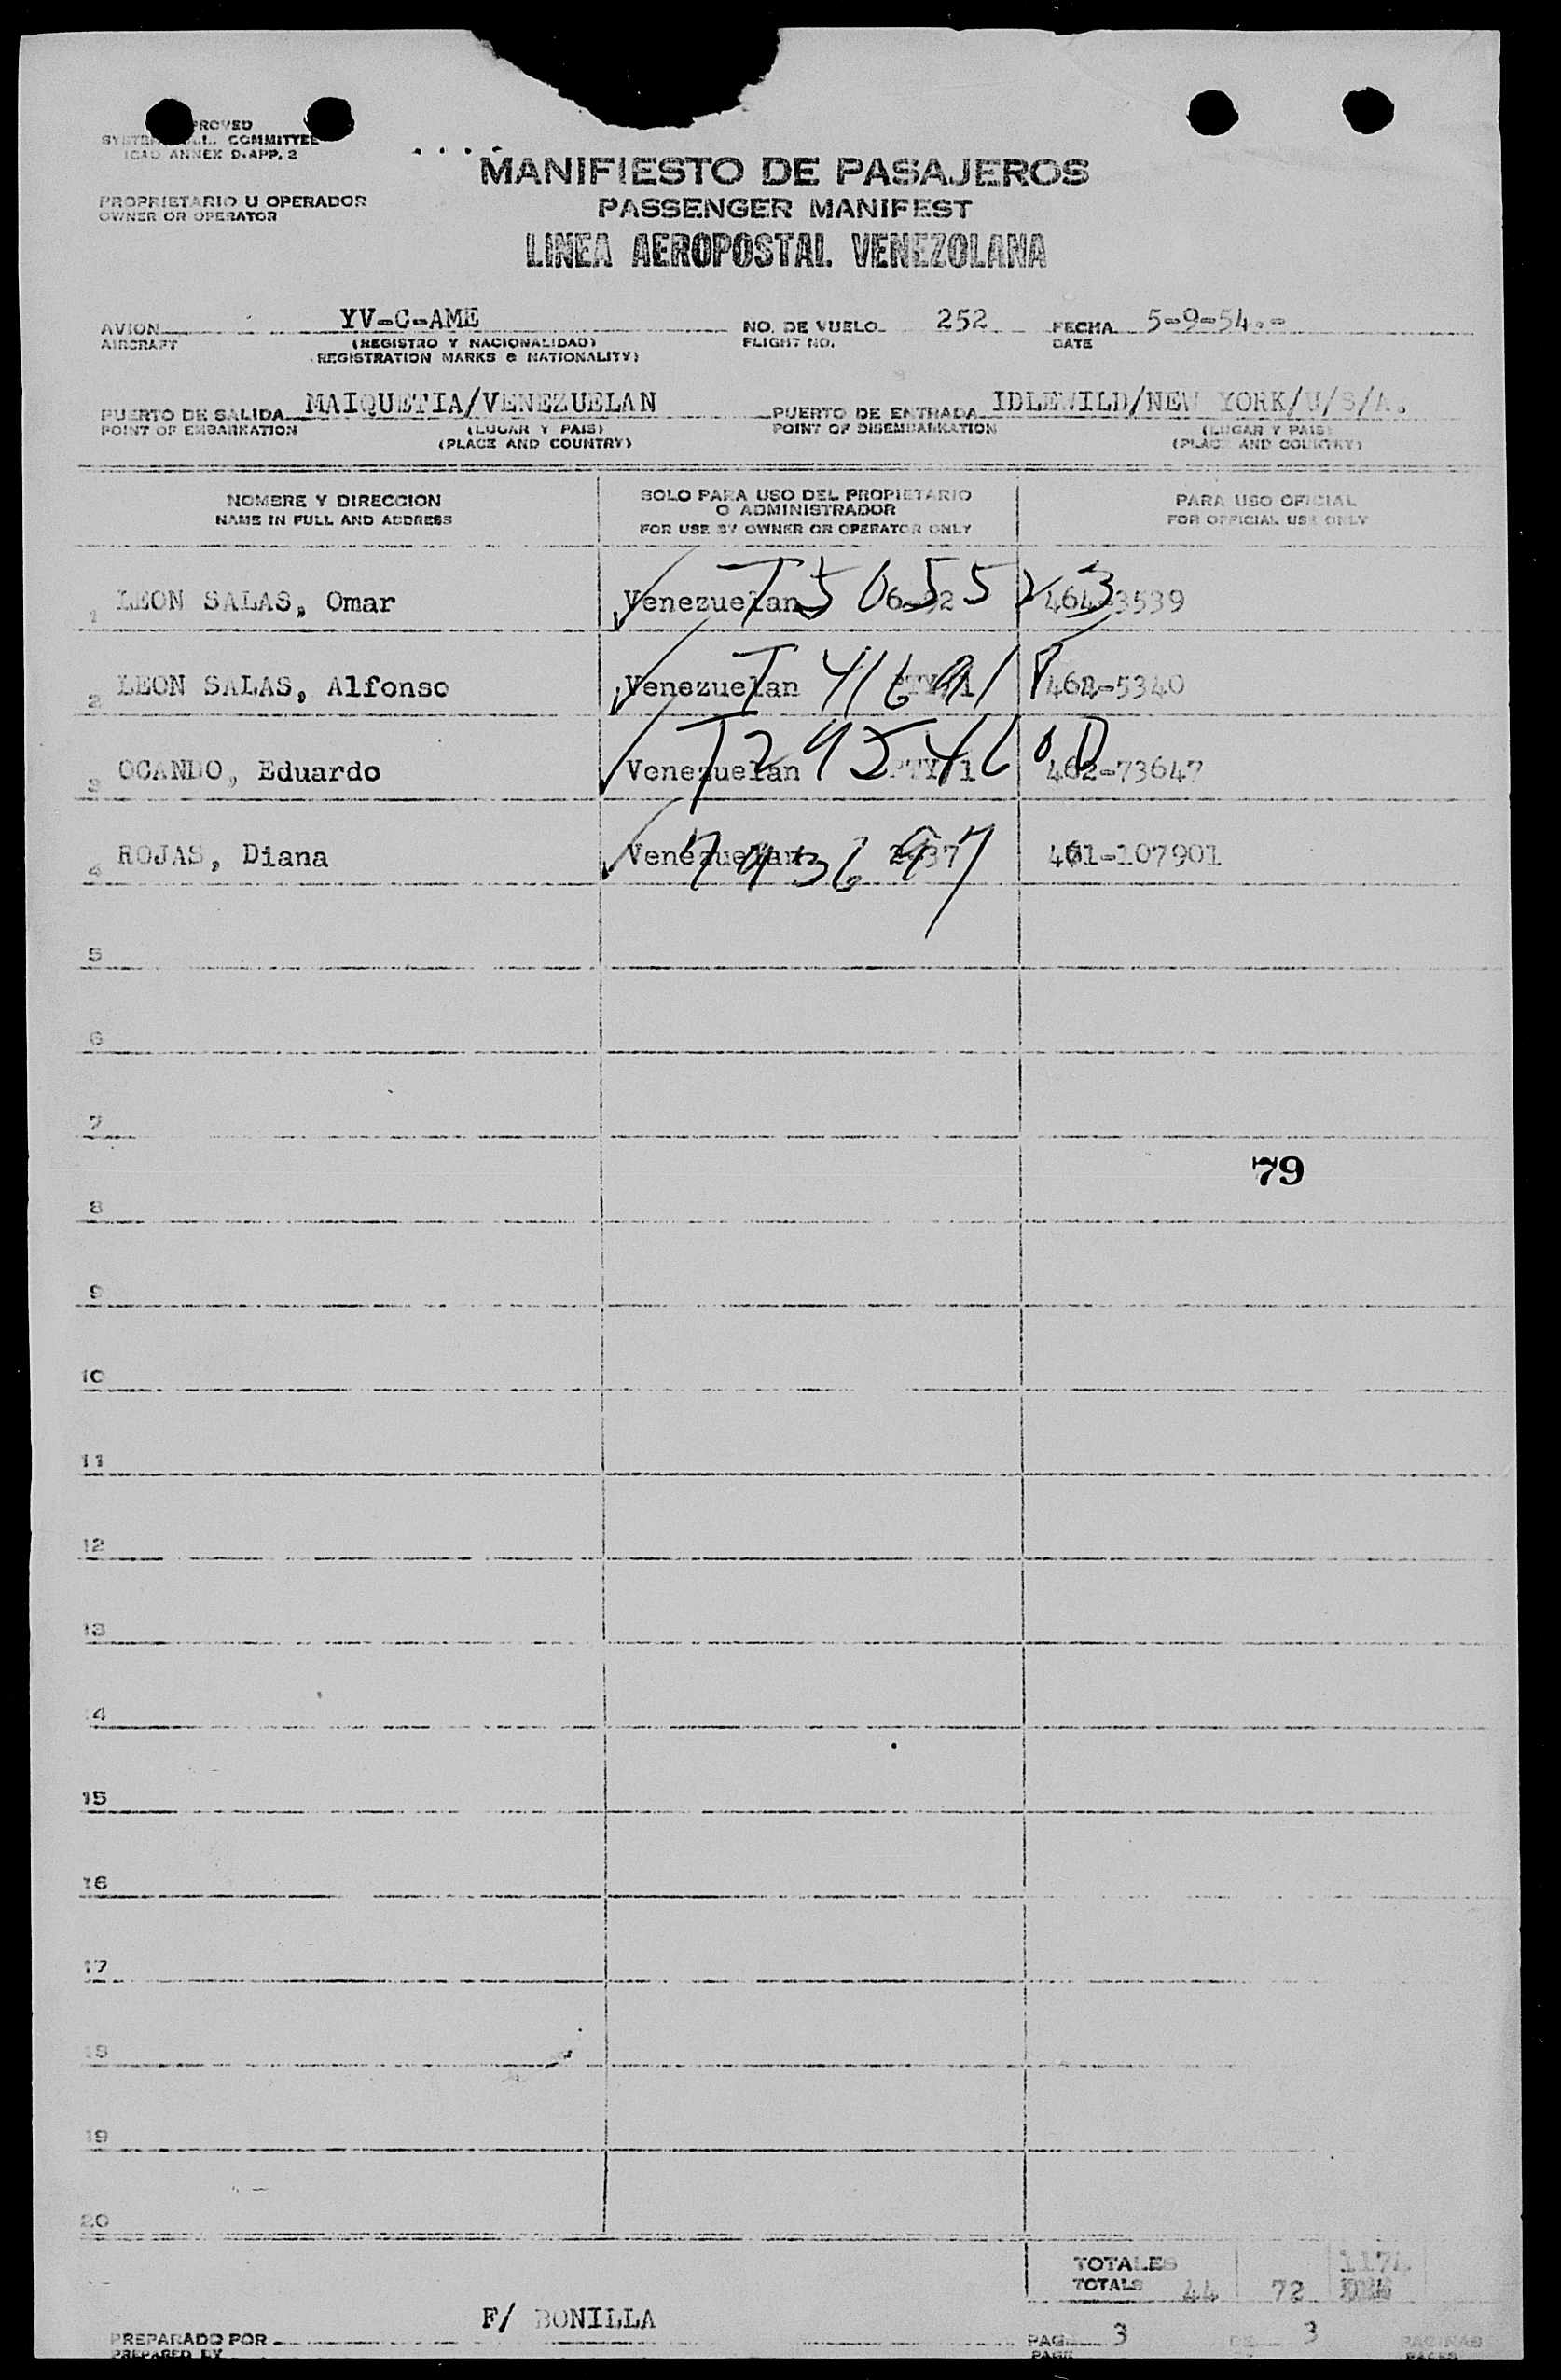 COMMITTEE
ICAO ANNEX D-APP. 2
MANIFIESTO DE PASAJEROS
PROPRIETARIO U OPERADOR
OWNER OR OPERATOR
PASSENGER MANIFEST
LINEA AEROPOSTAL VENEZOLANA
AVION YV-C-AME NO. DE VUELO 252 FECHA 5-9-54.-
AIRCRAFT (REGISTRO Y NACIONALIDAD) FLIGHT NO. DATE
(REGISTRATION MARKS & NATIONALITY)
PUERTO DE SALIDA MAIQUETIA/VENEZUELAN PUERTO DE ENTRADA IDLEWILD/NEW YORK/U/S/A.
POINT OF EMBARKATION (LUGAR Y PAIS) POINT OF DISEMBARKATION (LUGAR Y PAIS)
(PLACE AND COUNTRY) (PLACE AND COUNTRY)
NOMBRE Y DIRECCION SOLO PARA USO DEL PROPIETARIO PARA USO OFICIAL
O ADMINISTRADOR
NAME IN FULL AND ADDRESS FOR USE BY OWNER OR OPERATOR ONLY FOR OFFICIAL USE ONLY
T50655
1 LEON SALAS, Omar Venezuelan 3539
T
2 LEON SALAS, Alfonso Venezuelan -5340
T
3 OCANDO, Eduardo Venezuelan 462-73647
4 ROJAS, Diana Venezuelan 461-107901
5
6
7
79
8
9
10
11
12
13
14
15
16
17
18
19
20
TOTALES
TOTALS 44 72
F/ BONILLA
PREPARADO POR PAG. 3 DE 3 PAGINAS
PREPARED BY PAGE PAGES